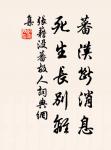 蕃漢斷消息
死生長別離
張籍沒蕃故人詞典網
集